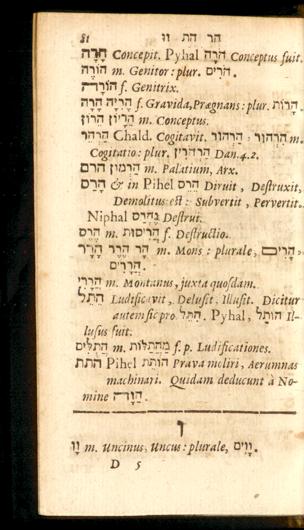 81 הר הת וו
הָרָה Concepit. Pyhal הֹרָה Conceptus fuit.
הוֹרֶה m. Genitor: plur. הֹרִים.
הוֹרָה f. Genitrix.
הָרָה הָרִיָּה f. Gravida, Prægnans: plur. הָרוֹת.
הֵרָיוֹן הֵרוֹן m. Conceptus.
הַרְהֵר Chald. Cogitavit. הִרְהוּר, הַרְהוֹר m.
Cogitatio: plur. הַרְהֹרִין Dan. 4. 2.
הַרְמוֹן הרם m. Palatium, Arx.
הָרַס & in Pihel הֵרֵס Diruit, Destruxit,
Demolitus est: Subvertit, Pervertit.
Niphal נֶהֱרַס Destrui.
הֶרֶס m. הֲרִיסוּת f. Destructio.
הַר הֶרֶר הָרָר m. Mons: plurale, הָרִים,
הֲרָרִים.
הֲרָרִי m. Montanus, juxta quosdam.
הָתַל Ludificavit, Delusit, Illusit. Dicitur
autem sic pro הִתֵּל. Pyhal, הוּתַל Il-
lusus fuit.
הֲתֻלִּים m. מַהֲתַלּוֹת f. p. Ludificationes.
התת Pihel הוֹתֵת Prava moliri, Aerumnas
machinari. Quidam deducunt à No-
mine הַוָּה.
ו
וָו m. Uncinus, Uncus: plurale, וָוִים.
D 5